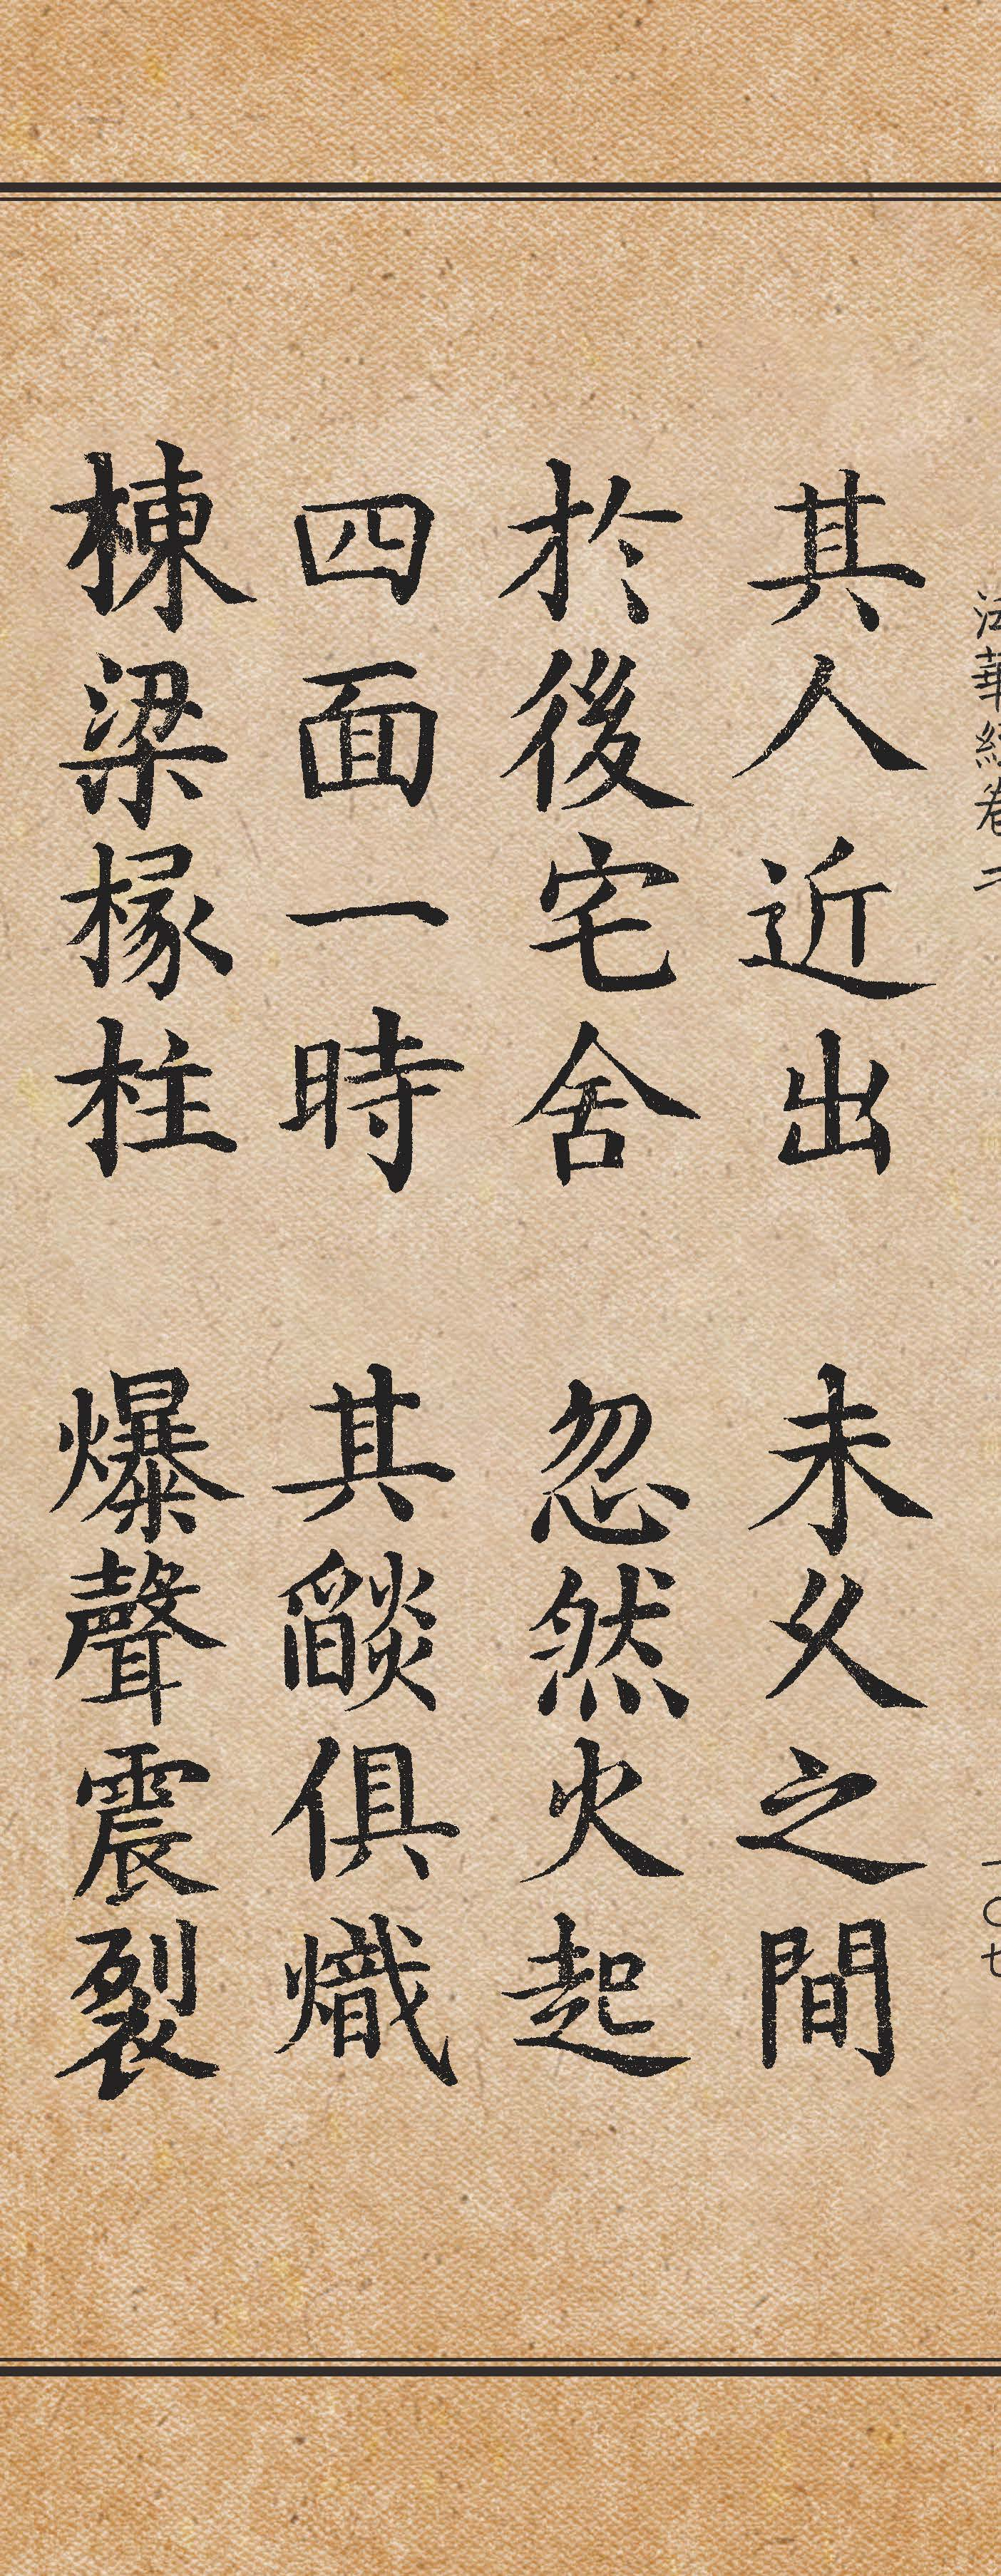 法華經卷二
一〇七
其人近出 未久之間
於後宅舍 忽然火起
四面一時 其燄俱熾
棟梁椽柱 爆聲震裂